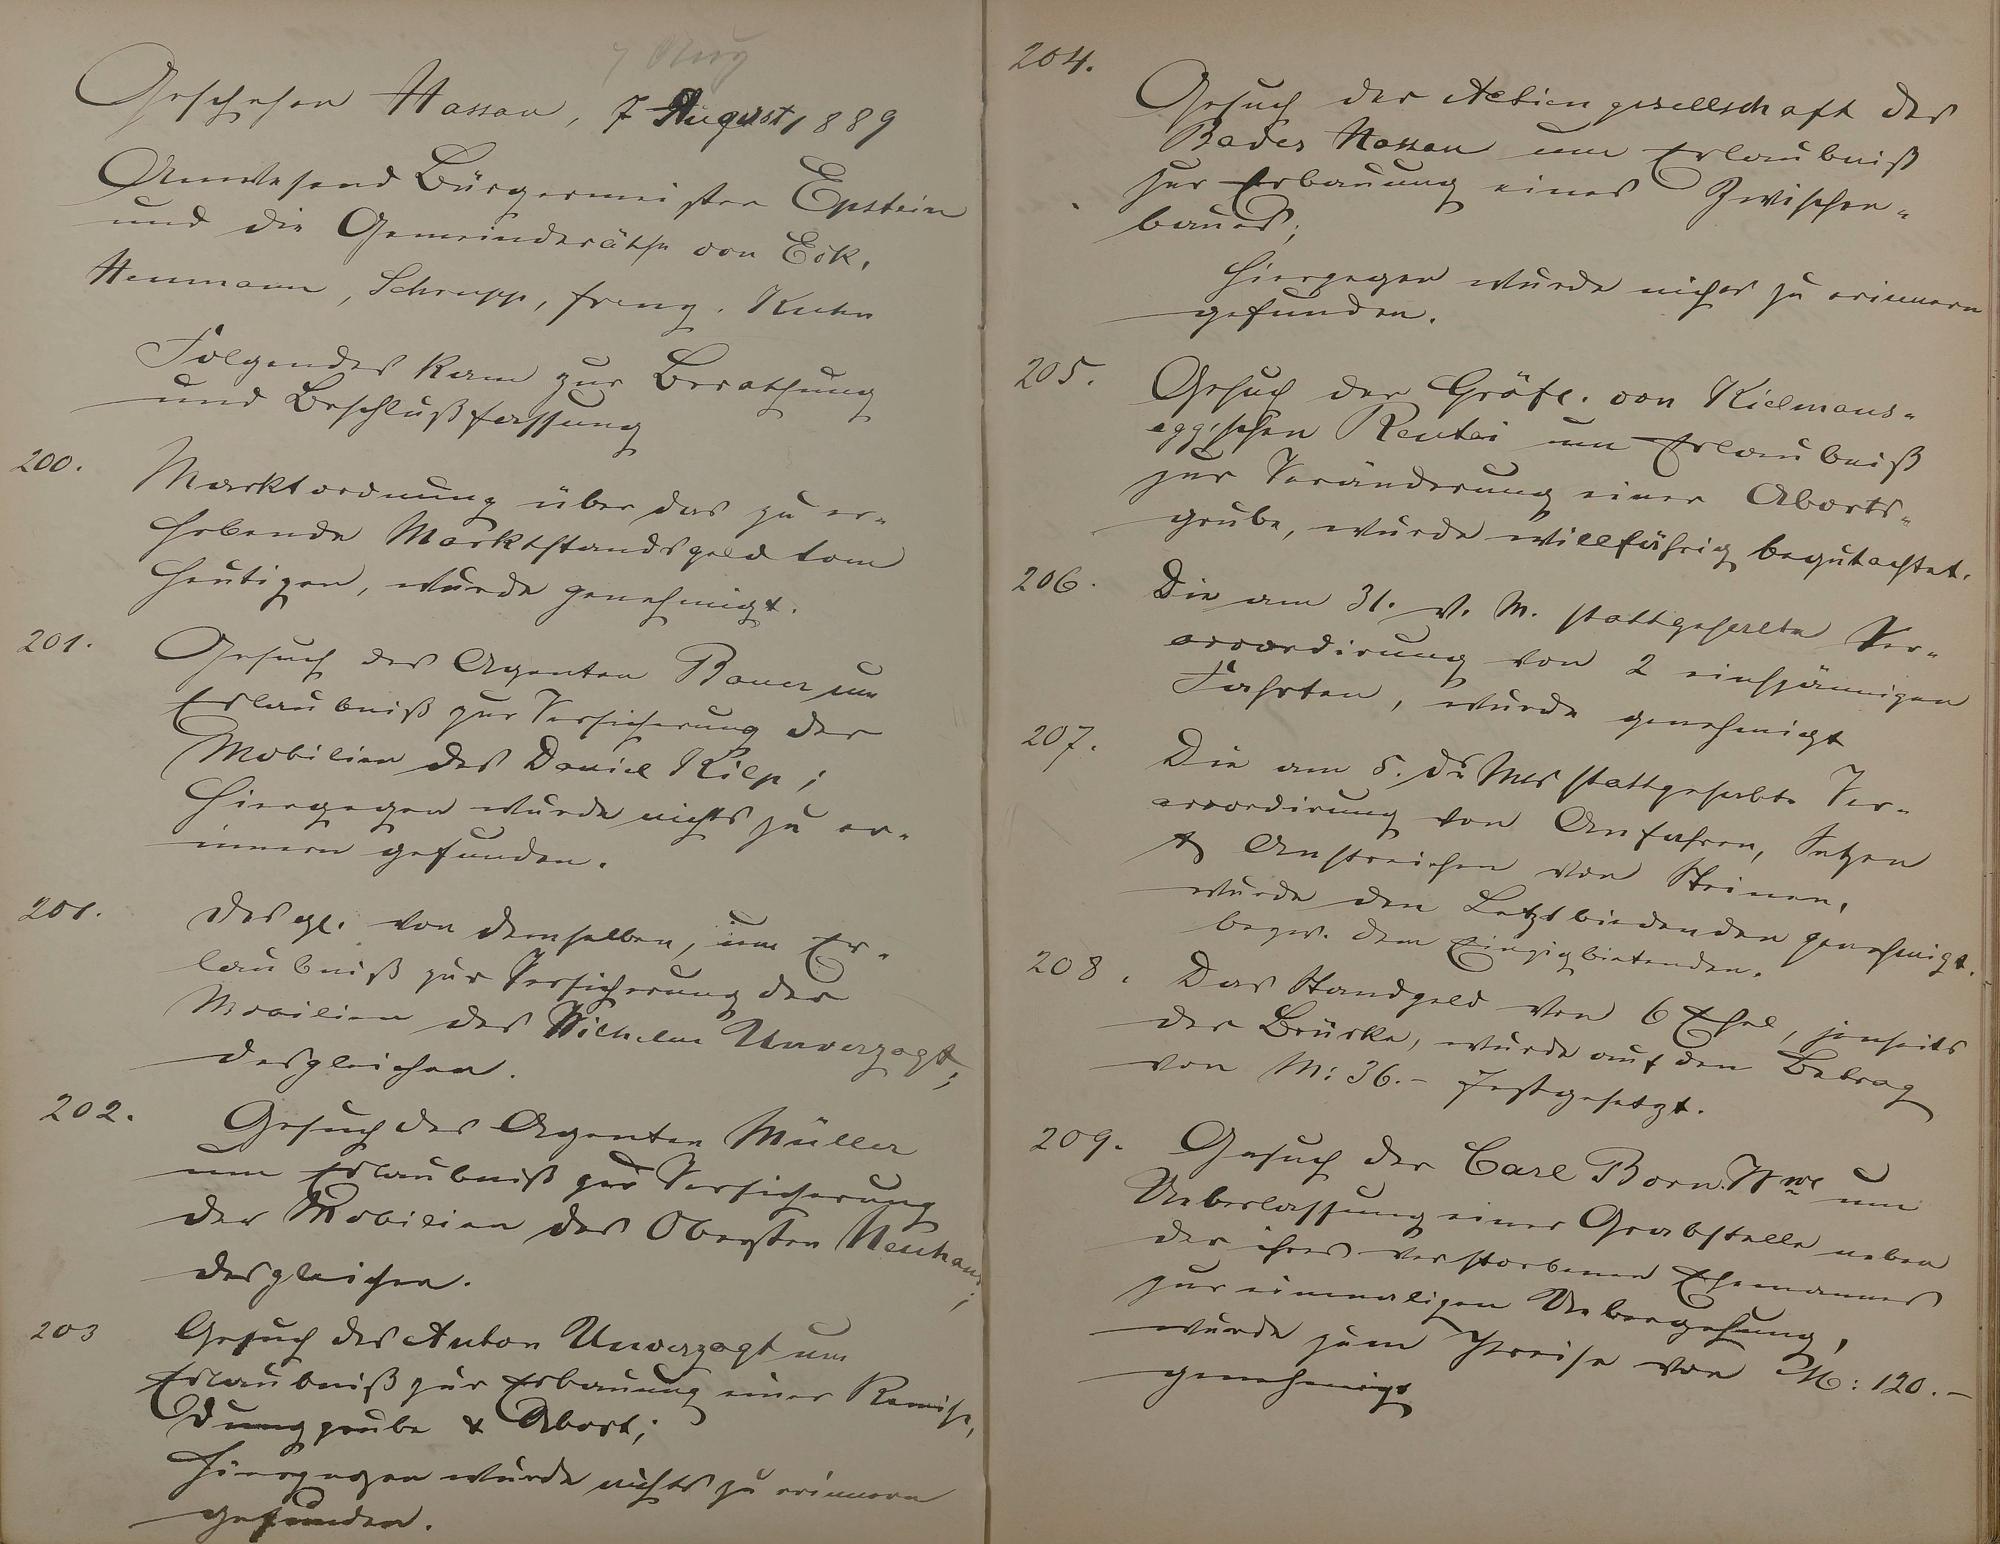 7 Aug
Geschehen Nassau, 7 August 1889
Anwesend Bürgermeister Epstein
und die Gemeinderäthe von Eck,
Heumann, Schrupp, Kuhn
Folgendes kam zur Berathung
und Beschlußfassung
200. Marktordnung über das zu er-
hebende Marktstandsgeld vom
heutigen, wurde genehmigt.
201. Gesuch des Agenten Bauer um
Erlaubniß zur Versicherung der
Mobilien des Daniel Kilp;
hiergegen wurde nichts zu er-
innern gefunden.
201. Desgl. von demselben, um Er-
laubniß zur Versicherung der
Mobilien des Wilhelm Unverzagt;
desgleichen.
202. Gesuch des Agenten Müller
um Erlaubniß zur Versicherung
der Mobilien des Obersten Neuhaus;
desgleichen.
203 Gesuch des Anton Unverzagt um
Erlaubniß zur Erbauung einer Remise,
Dunggrube & Abort;
hiergegen wurde nichts zu erinnern
gefunden.
204.
Gesuch der Actiengesellschaft des
Bades Nassau um Erlaubniß
zur Erbauung eines Zwischen-
baues;
hiergegen wurde nichts zu erinnern
gefunden.
205. Gesuch der Gräfl. von Kielmans-
egg'schen Rentei um Erlaubniß
zur Veränderung einer Aborts-
grube, wurde willfährig begutachtet.
206. Die am 31. v. M. stattgehabte Ver-
accordirung von 2 einspännigen
Fuhrten, wurde genehmigt
207. Die am 5. ds Mts stattgehabte Ver-
accordirung von Anfahren, Setzen
& Anstreichen von Steinen,
wurde den Letztbietenden genehmigt.
bezw. dem Einzigbietenden.
208. Das Standgeld von 6 Esel, jenseits
der Brücke, wurde auf den Betrag
von M: 36.- festgesetzt.
209. Gesuch der Carl Born Wwe um
Ueberlassung einer Grabstelle neben
der ihres verstorbenen Ehemannes
zur einmaligen Uebergehung,
wurde zum Preise von M: 120.-
genehmigt